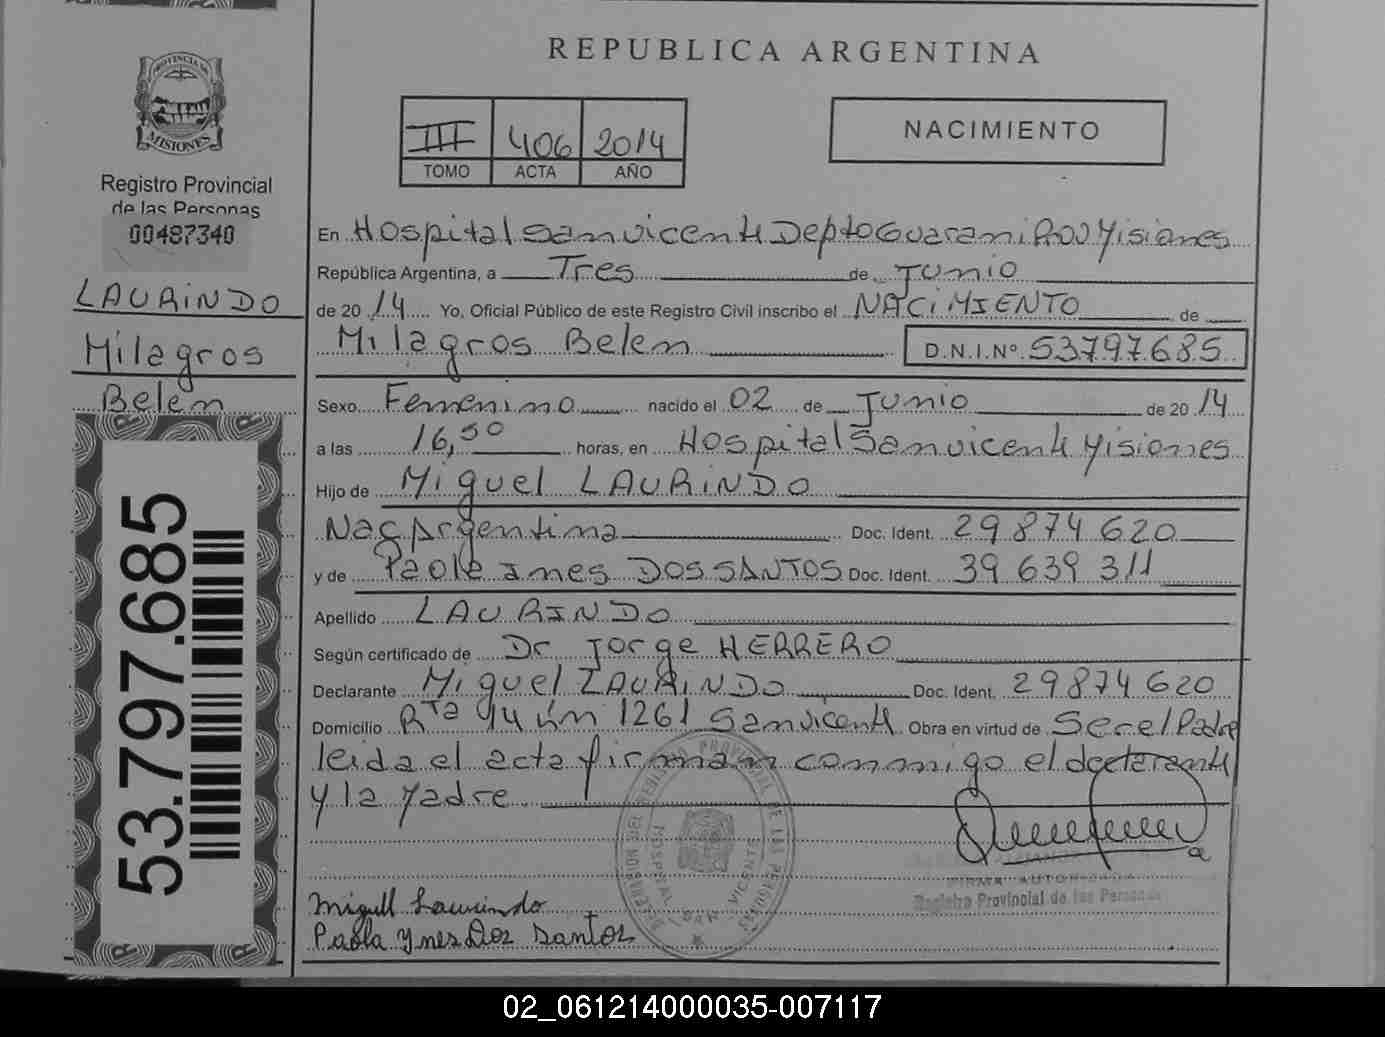 REPUBLICA ARGENTINA
PROVINCIA DE
MISIONES
Registro Provincial
de las Personas
00487340
LAURINDO
Milagros
Belen
53.797.685
III 406 2014
TOMO ACTA AÑO
NACIMIENTO
En Hospital San vicente Depto Guarani Prov Misiones
República Argentina, a Tres de Junio
de 20 14 Yo, Oficial Público de este Registro Civil inscribo el NACIMIENTO de
Milagros Belen D.N.I.Nº 53797685
Sexo Femenino nacido el 02 de Junio de 20 14
a las 16,50 horas, en Hospital San vicente Misiones
Hijo de Miguel LAURINDO
Nac Argentina Doc. Ident. 29 874 620
y de Paola Ines DOS SANTOS Doc. Ident. 39 639 311
Apellido LAURINDO
Según certificado de Dr Jorge HERRERO
Declarante Miguel LAURINDO Doc. Ident. 29874620
Domicilio Rta 14 km 1261 San vicente Obra en virtud de Ser el Padre
leida el acta firman conmigo el declarante
y la Madre
FIRMA AUTORIZADA
Registro Provincial de las Personas
REGISTRO PROVINCIAL DE LAS PERSONAS
HOSPITAL SAN VICENTE
Miguel Laurindo
Paola Ynes Dos Santos
02_061214000035-007117